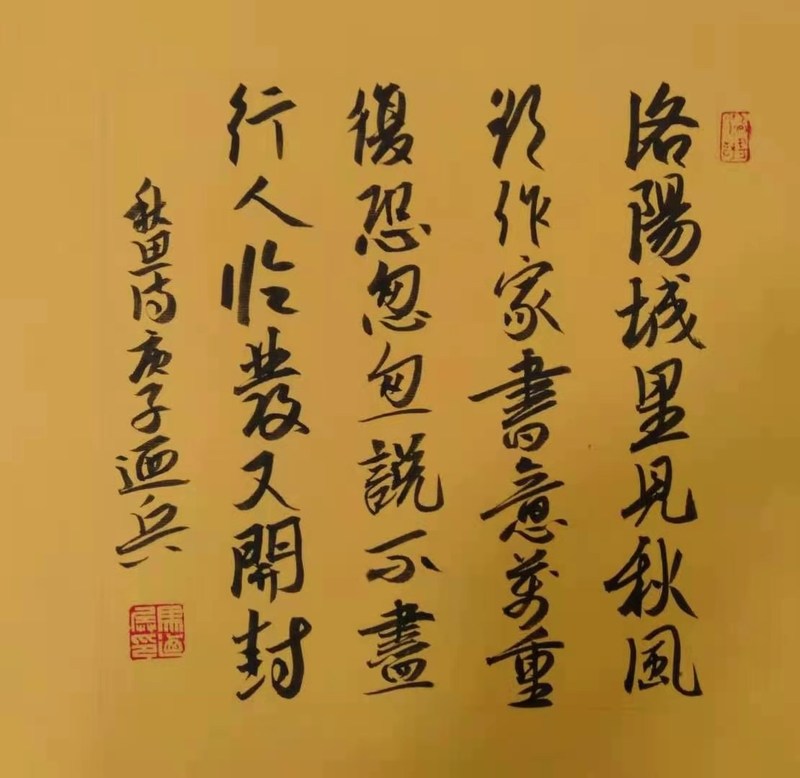 洛陽城里見秋風
欲作家書意萬重
復恐怱怱說不盡
行人临發又開封
秋思诗庚子迺兵